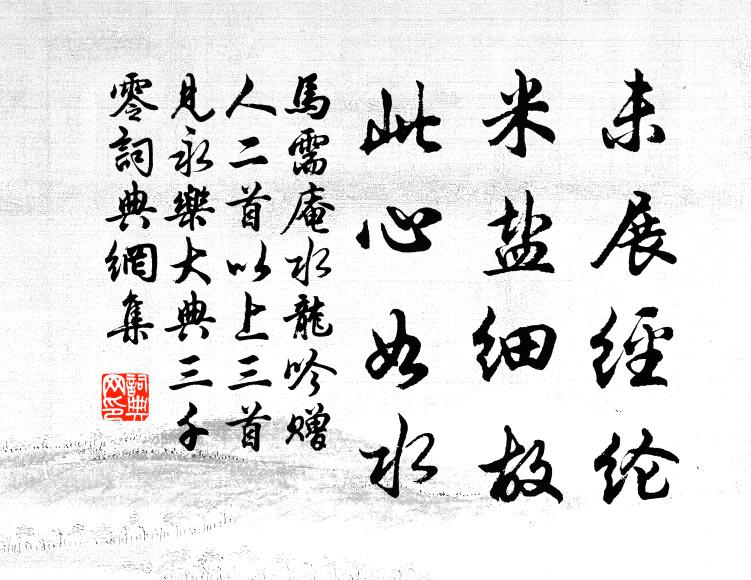 未展經纶
米盐细故
此心如水
馬需庵水龍吟赠
人二首以上三首
見永樂大典三千
零詞典網集
詞典网印